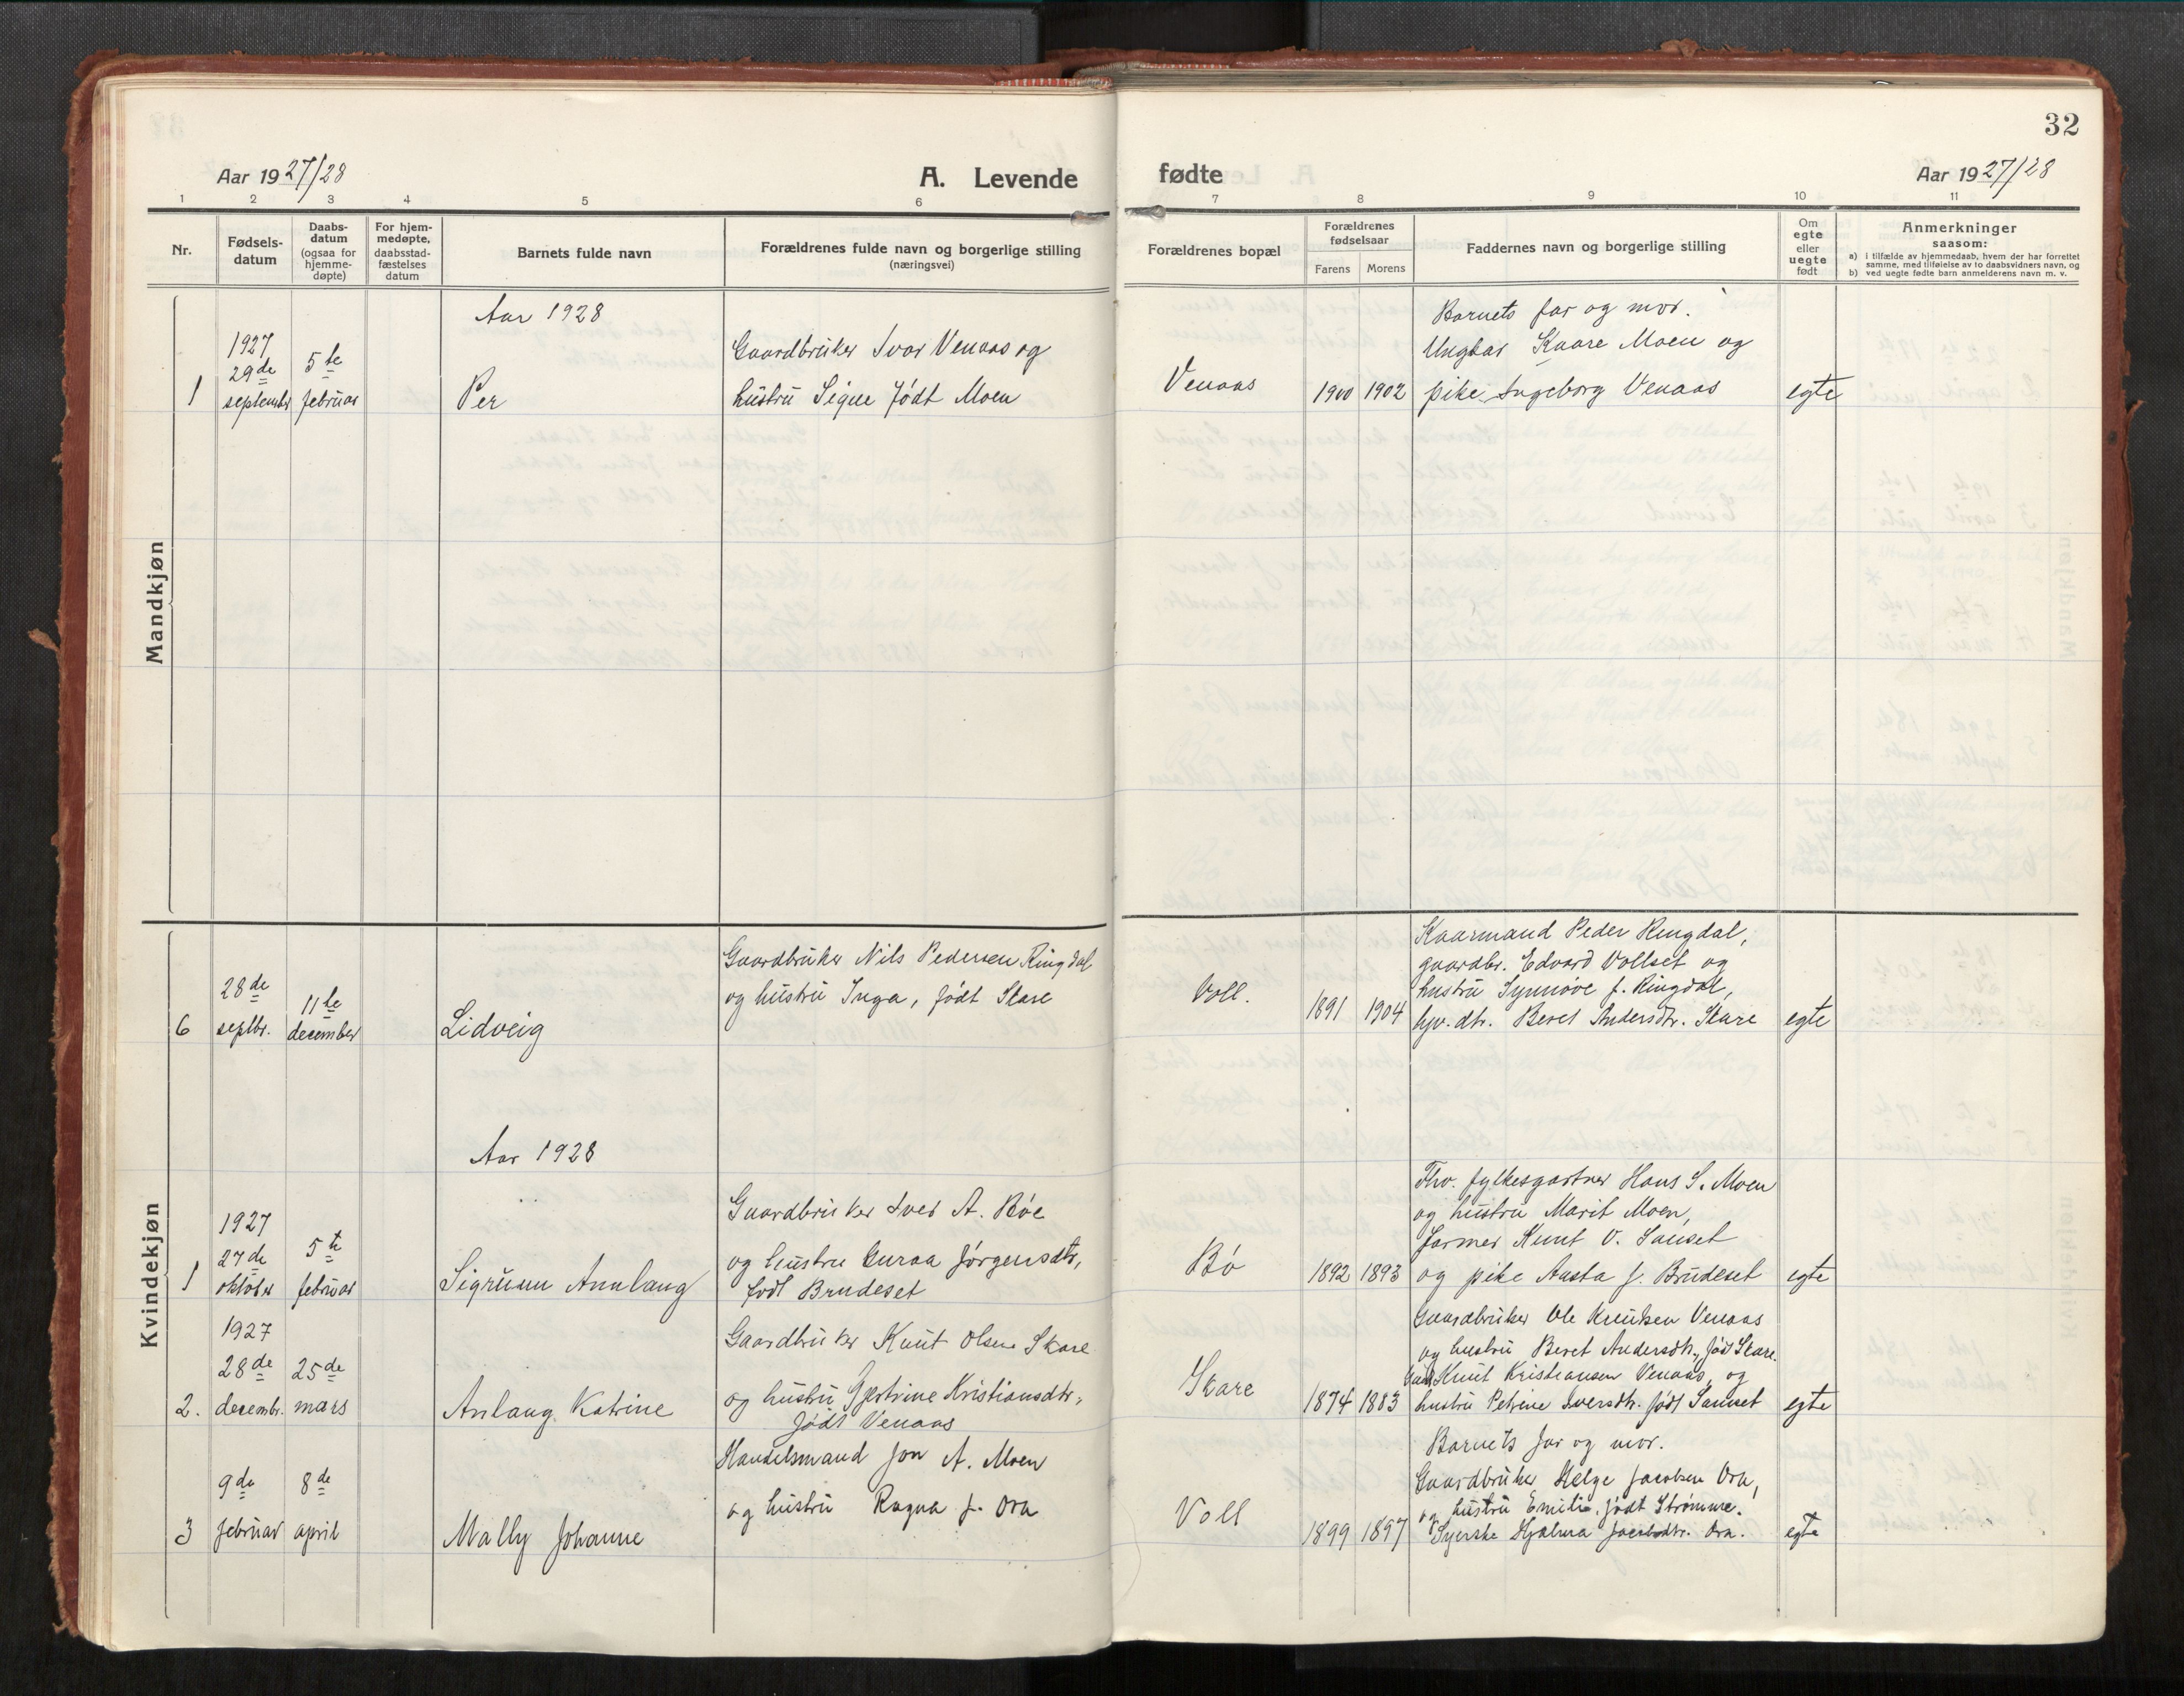 32
Aar 1927/28
A. Levende
fødte
Aar 1927/28
1 2 3 4 5 6 7 8 9 10 11
Nr.
Fødsels-
datum
Daabs-
datum
(ogsaa for
hjemme-
døpte)
For hjem-
medøpte,
daabsstad-
fæstelses
datum
Barnets fulde navn
Forældrenes fulde navn og borgerlige stilling
(næringsvei)
Forældrenes bopæl
Forældrenes
fødselsaar
Farens Morens
Faddernes navn og borgerlige stilling
Om
egte
eller
uegte
født
Anmerkninger
saasom:
a) i tilfælde av hjemmedaab, hvem der har forrettet
samme, med tilføielse av to daabsvidners navn, og
b) ved uegte fødte barn anmelderens navn m. v.
Mandkjøn
Aar 1928
1
1927
29de
september
5te
februar
Per
Gaardbruker Ivar Venaas og
hustru Signe født Moen
Venaas
1900 1902
Barnets far og mor.
Ungkar Kaare Moen og
pike Ingeborg Venaas
egte
Kvindekjøn
6
28de
septbr.
11te
december
Lidveig
Gaardbruker Nils Pedersen Ringdal
og hustru Inga, født Skare
Voll.
1891 1904
Kaarmand Peder Ringdal,
gaardbr. Edvard Vollset og
hustru Synnøve f. Ringdal,
gpv. dtr. Beret Andersdtr. Skare
egte
Aar 1928
1
1927
27de
oktober
5te
februar
Sigrunn Annlaug
Gaardbruker Iver A. Bøe
og hustru Guraa Jørgensdtr,
født Brudeset
Bø
1892 1893
Fhv. fylkesgartner Hans S. Moen
og hustru Marit Moen,
farmer Knut O. Sanset
og pike Aasta J. Brudeset
egte
2.
1927
28de
decembr.
25de
mars
Anlaug Katrine
Gaardbruker Knut Olsen Skare
og hustru Gjertrine Kristiansdtr.
født Venaas
Skare
1874 1883
Gaardbruker Ole Knutsen Venaas
og hustru Beret Andersdtr., født Skare.
Knut Kristiansen Venaas og
hustru Petrine Iversdtr. født Sanset
egte
3
9de
februar
8de
april
Mally Johanne
Handelsmand Jon A. Moen
og hustru Ragna f. Ora
Voll
1899 1897
Barnets far og mor.
Gaardbruker Helge Jacobsen Ora,
og hustru Emilie født Strømme.
Syerske Hjalma Jacobsdtr. Ora.
egte